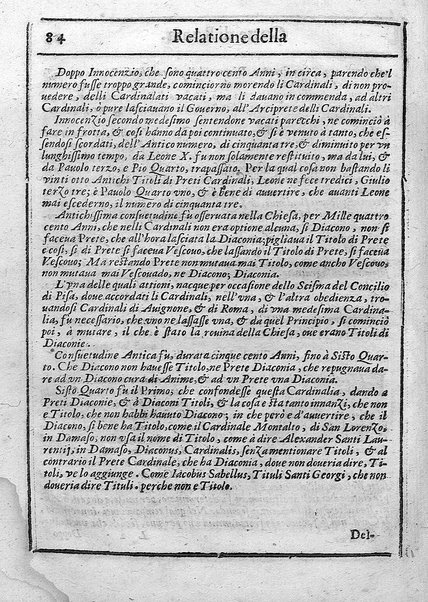 84 Relatione della
Doppo Innocenzio, che sono quattro cento Anni, in circa, parendo che'l
numero fusse troppo grande, cominciorno morendo li Cardinali, di non pro-
uedere, delli Cardinalati vacati, ma li dauano in commenda, ad altri
Cardinali, ò pure lasciauano il Gouerno, all'Arciprete delli Cardinali.
Innocenzio secondo medesimo sentendone vacati parecchi, ne cominciò à
fare in frotta, & così hanno da poi continuato, & si è venuto à tanto, che es-
sendosi scordati, dell'Antico numero, di cinquanta tre, & diminuito per vn
lunghissimo tempo, da Leone X. fu non solamente restituito, ma da lui, &
da Pauolo terzo, e Pio Quarto, trapassato. Per la qual cosa non bastando li
vinti otto Antichi Titoli di Preti Cardinali, Leone ne fece tredici, Giulio
terzo tre; è Pauolo Quarto vno, & è bene di auuertire, che auanti Leone
mai escederno, il numero di cinquanta tre.
Antichissima consuetudine fu osseruata nella Chiesa, per Mille quattro
cento Anni, che nelli Cardinali non era optione alcuna, si Diacono, non si
faceua Prete, che all'hora lasciata la Diaconia; pigliaua il Titolo di Prete
e così, si di Prete si faceua Vescouo, che lassando il Titolo di Prete, si faceua
Vescouo; Ma restando Prete non mutaua mai Titolo, come ancho Vescouo,
non mutaua mai Vescouado, ne Diacono; Diaconia.
L'vna delle quali attioni, nacque per occasione dello Scisma del Concilio
di Pisa, doue accordati li Cardinali, nell'vna, & l'altra obedienza, tro-
uandosi Cardinali di Auignone, & di Roma, di vna medesima Cardina-
lia, fu necessario, che vno ne lassasse vna, & da quel Principio, si cominciò
poi, à mutare, il che è stato la rouina della Chiesa, oue erano Titoli di
Diaconie.
Consuetudine Antica fu, durata cinque cento Anni, fino à Sisto Quar-
to. Che Diacono non hauesse Titolo, ne Prete Diaconia, che repugnaua da-
re ad vn Diacono cura di Anime, & ad vn Prete vna Diaconia.
Sisto Quarto fu il Primo; che confondesse questa Cardinalia, dando a
Preti Diaconie, & à Diaconi Titoli, & la cosa è sta tanto innanzi, che non
e Titolo, che non habbi hauuto Diacono; in che però e d'auuertire, che il
Diacono, si bene ha Titolo, come il Cardinale Montalto, di San Lorenzo,
in Damaso, non vsa il nome di Titolo, come à dire Alexander Santi Lau-
rentij, in Damaso, Diaconus, Cardinalis, senza mentionare Titoli, & al
contrario il Prete Cardinale, che ha Diaconia, doue non doueria dire, Ti-
toli, ve lo aggiunge. Come Iacobus Sabellus, Tituli Santi Georgi, che non
doueria dire Tituli. perche non e Titolo.
Del-